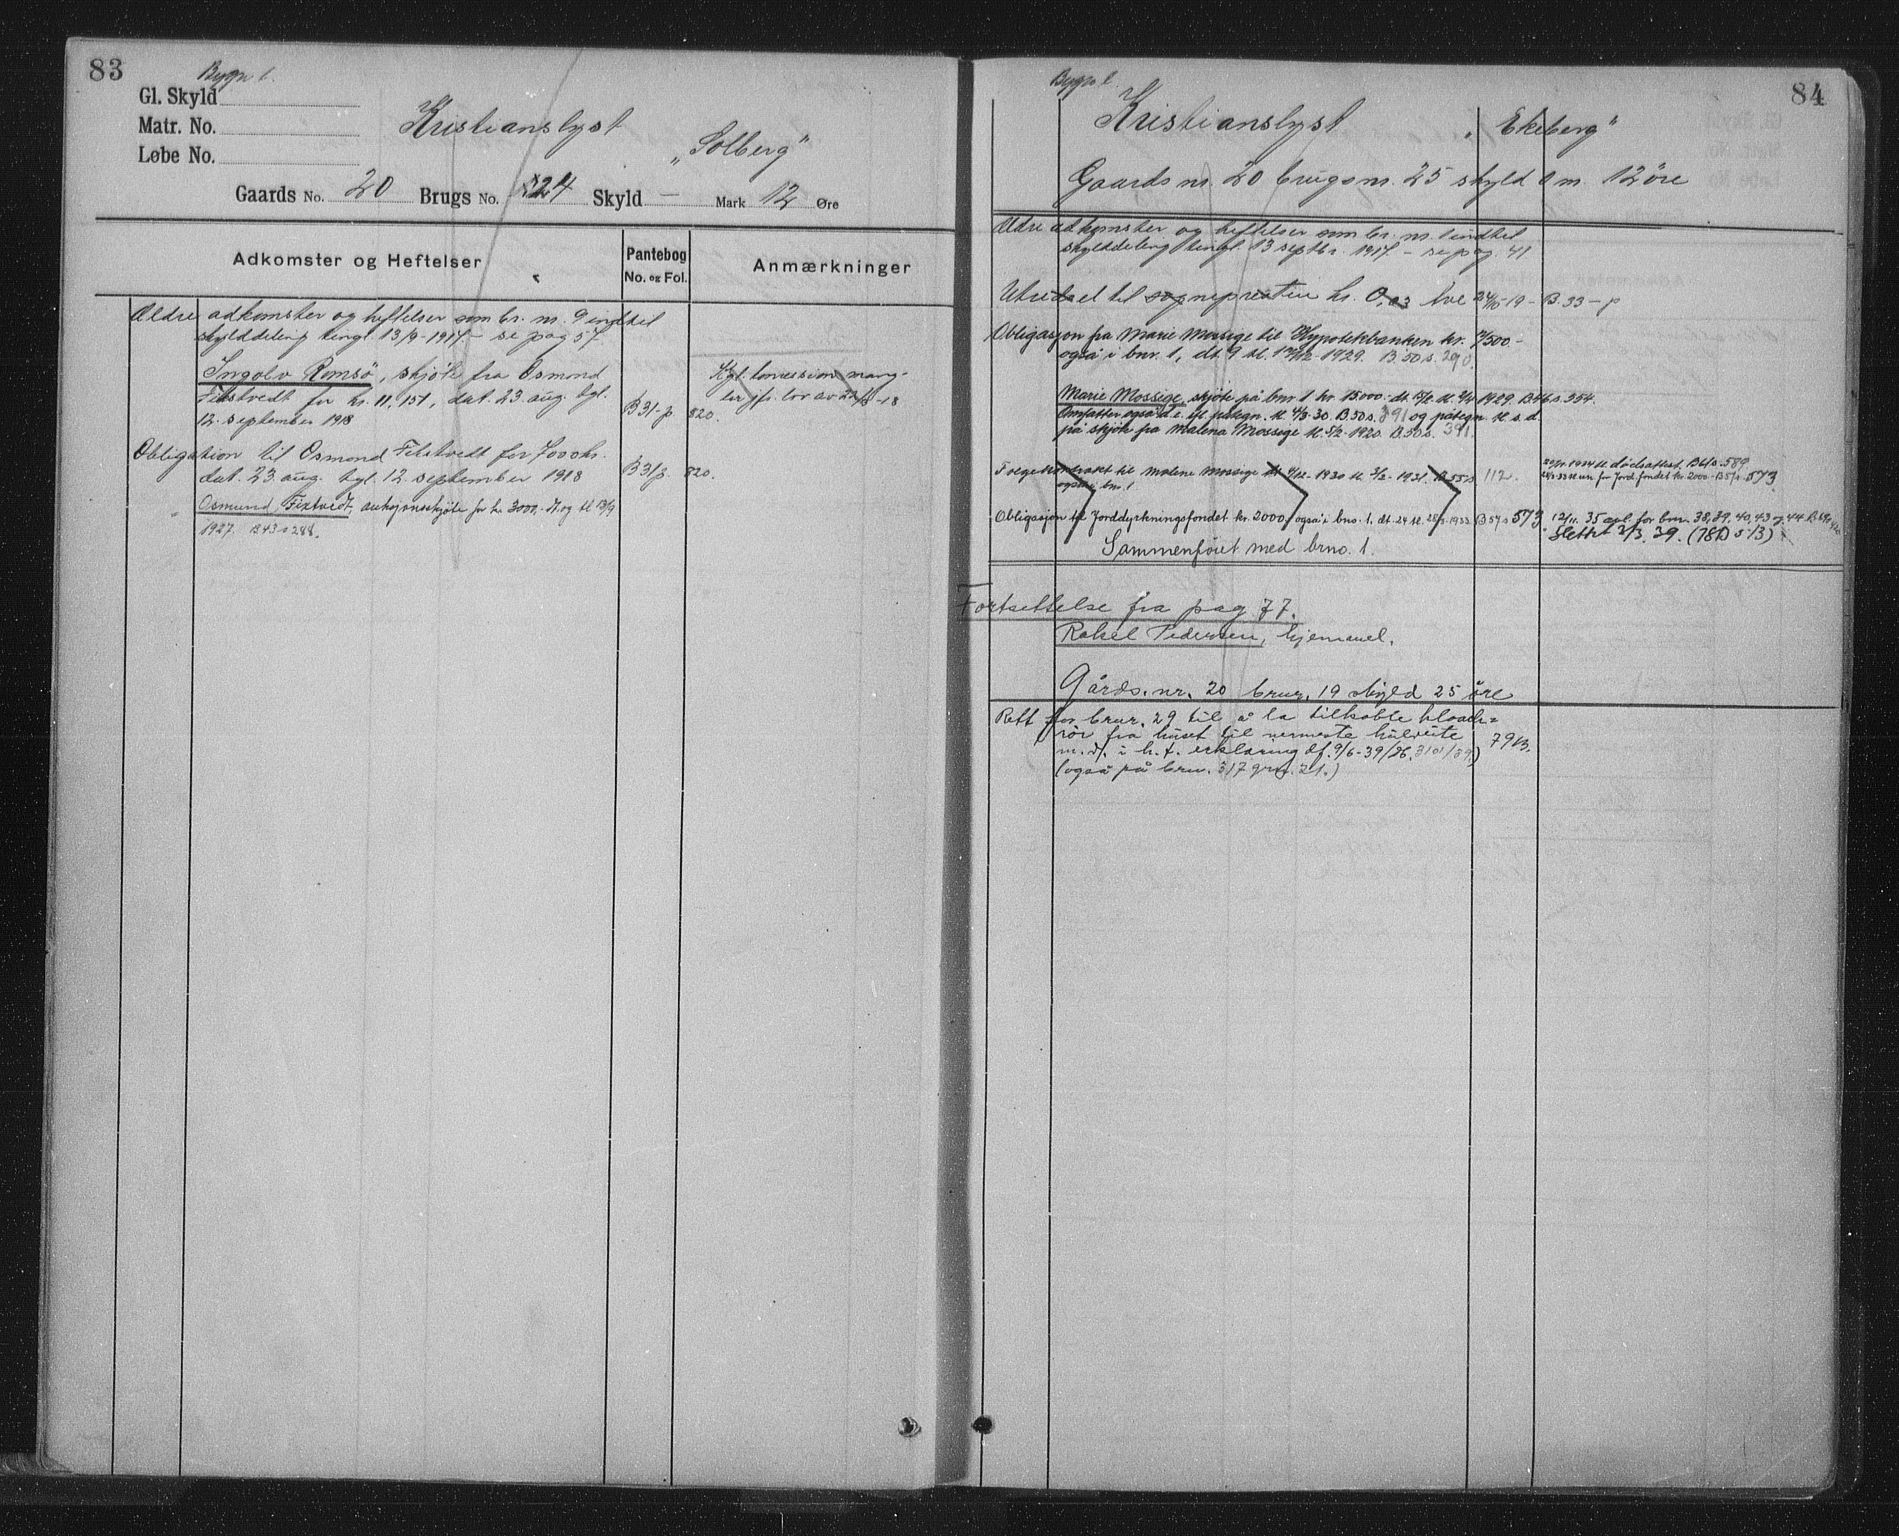 83
Bygn l.
Gl. Skyld
Matr. No.
Løbe No.
Kristianslyst
„Solberg“
Gaards No. 20 Brugs No. 24 Skyld — Mark 12 Øre
Adkomster og Heftelser
Pantebog
No. og Fol.
Anmærkninger
Ældre adkomster og heftelser som br. nr. 9 indtil
skylddeling tingl. 13/9-1917 - se pag 57.
Ingolv Romsø, skjøte fra Osmond
Fikstvedt for kr. 11,151, dat. 23 aug. tgl.
12. september 1918
B 31. p. 820.
Kgl. konsession mang-
ler jfr. lov av
Obligation til Osmond Fikstvedt for 7000 kr.
dat. 23 aug. tgl. 12 september 1918
B 31 p. 820.
Osmund Fixtvedt, auksjonsskjøte for kr. 3000,- og tl 13/9
1927. B 43 s 288.
84
Bygn l.
Kristianslyst „Ekeberg“
Gaards nr. 20 brugs nr. 25 skyld 0 m. 12 öre
Ældre adkomster og heftelser som br. nr. 1 indtil
skylddeling tingl. 13 septbr. 1917 - se pag. 41
Utredsel til sognepresten kr. 0,03 - B. 33 - p
Obligasjon fra Marie Mossige til Hypotekbanken kr. 7500.-
også i bnr. 1, dt. 9 tl. 17/12-1929. B 50 s. 290.
Marie Mossige, skjöte på bnr 1 kr 15000.- 1929. B 46 s. 354.
Omfatter også d.e. tl. påtegn. tl 4/3-30. B 50 s. 391 og påtegn. tl s. d.
på skjöte fra Malena Mossige tl. 5/2-1920. B 50 s. 391.
Folgekontrakt til Malene Mossige dt 9/12-1930 tl. 3/2-1931. B 55 s 112.
også i bnr. 1.
1934 tl. dødsattest. B 61 s. 589
for Jord.fondet kr 2000.- B 57 s 573
Obligasjon til Jorddyrkningsfondet kr. 2000, også i bno. 1. dt. 24 tl. 28/3-1933. B 57 s 573.
12/11. 35 for bnr. 38, 39, 40, 43 og 44
Slettet 3/3. 39. (781)
Sammenföiet med brno. 1.
Fortsettelse fra pag 77.
Rakel Pedersen, hjemmel.
Gårds. nr. 20 brnr. 19 skyld 25 öre
Rett for brnr. 29 til å la tilkoble kloak-
rör fra huset til nermeste
m. v. i h. t. erklæring df. 9/6-39/26. 3101/39.)
(også på brnr. 317 gnr. 21.)